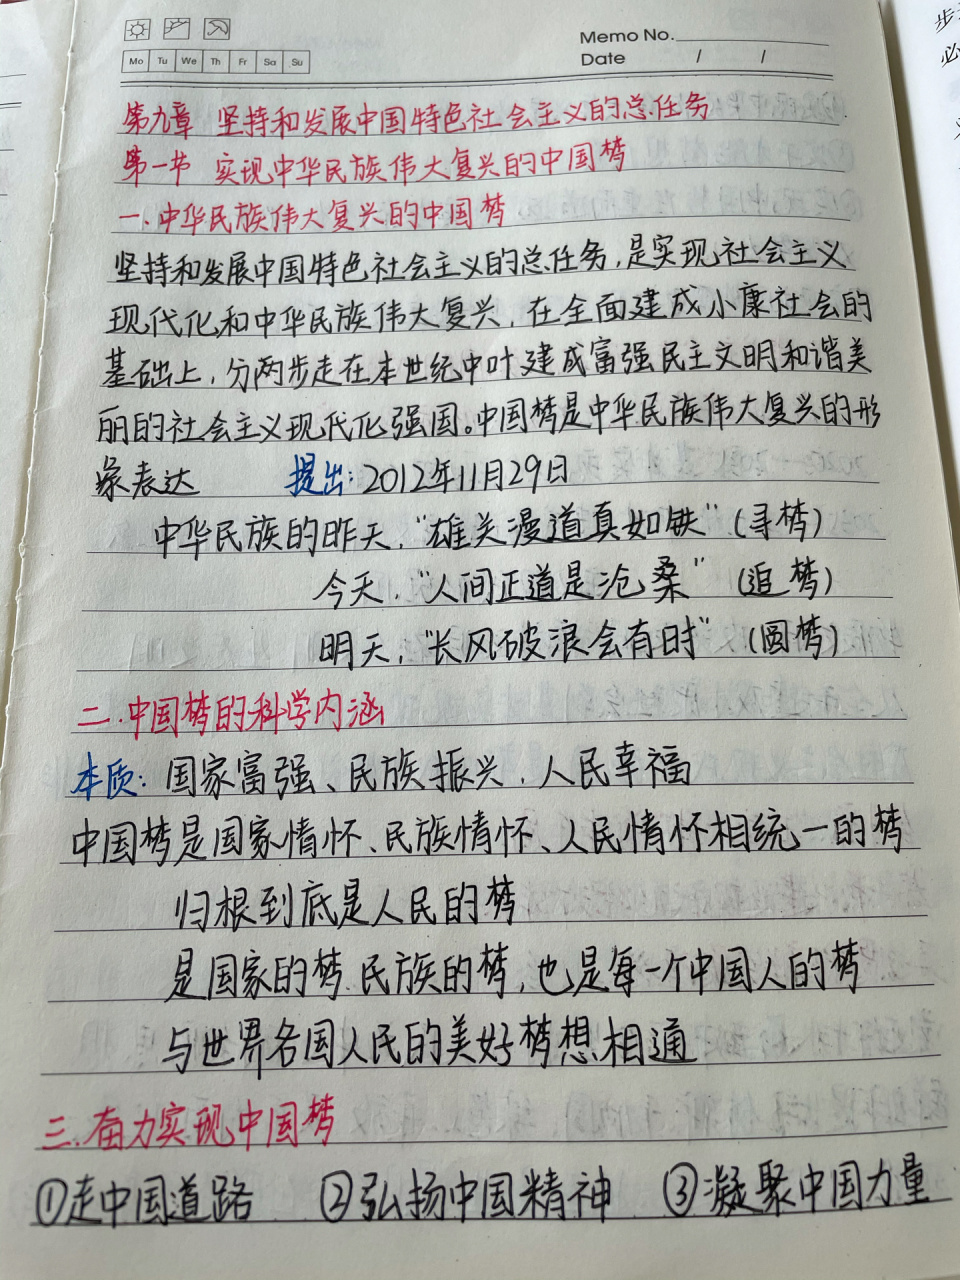 Memo No.
Mo Tu We Th Fr Sa Su
Date / /
第九章 坚持和发展中国特色社会主义的总任务
第一节 实现中华民族伟大复兴的中国梦
一.中华民族伟大复兴的中国梦
坚持和发展中国特色社会主义的总任务,是实现社会主义
现代化和中华民族伟大复兴,在全面建成小康社会的
基础上,分两步走在本世纪中叶建成富强民主文明和谐美
丽的社会主义现代化强国。中国梦是中华民族伟大复兴的形
象表达 提出:2012年11月29日
中华民族的昨天,“雄关漫道真如铁”(寻梦)
今天,“人间正道是沧桑”(追梦)
明天,“长风破浪会有时”(圆梦)
二.中国梦的科学内涵
本质:国家富强、民族振兴、人民幸福
中国梦是国家情怀、民族情怀、人民情怀相统一的梦
归根到底是人民的梦
是国家的梦.民族的梦,也是每一个中国人的梦
与世界各国人民的美好梦想相通
三.奋力实现中国梦
①走中国道路 ②弘扬中国精神 ③凝聚中国力量
步
必